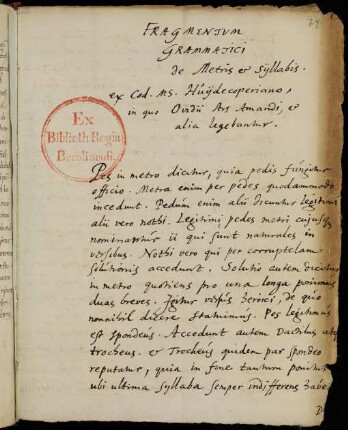 29
FRAGMENTUM
GRAMMATICI
de Metris & Syllabis.
ex Cod. MS. Huydecoperiano,
in quo Ovidii Ars Amandi, &
alia legebantur.
Ex
Biblioth. Regia
Berolinensi.
Pes in metro dicitur, quia pedis fungitur
officio. Metra enim per pedes quodammodo
incedunt. Pedum enim alii dicuntur legitimi
alii vero nothi. Legitimi pedes metri cujusq
nominantur ii qui sunt naturales in
versibus. Nothi vero qui per corruptelam
solutionis accedunt. Solutio autem dicitur
in metro quotiens pro una longa ponimus
duas breves. Igitur versus heroici, de quo
nonnihil dicere statuimus. Pes legitimus
est spondeus. Accedunt autem Dactilus atq
trocheus. & Trocheus quidem par spondeo
reputatur, quia in fine tantum ponitur
ubi ultima syllaba semper indifferens habe